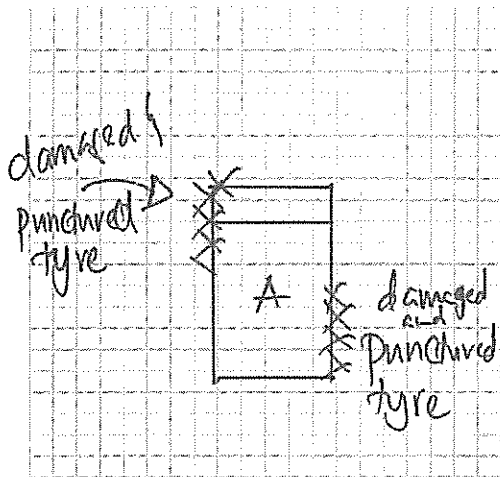 damaged &
punctured
tyre
A
damaged
and
punctured
tyre